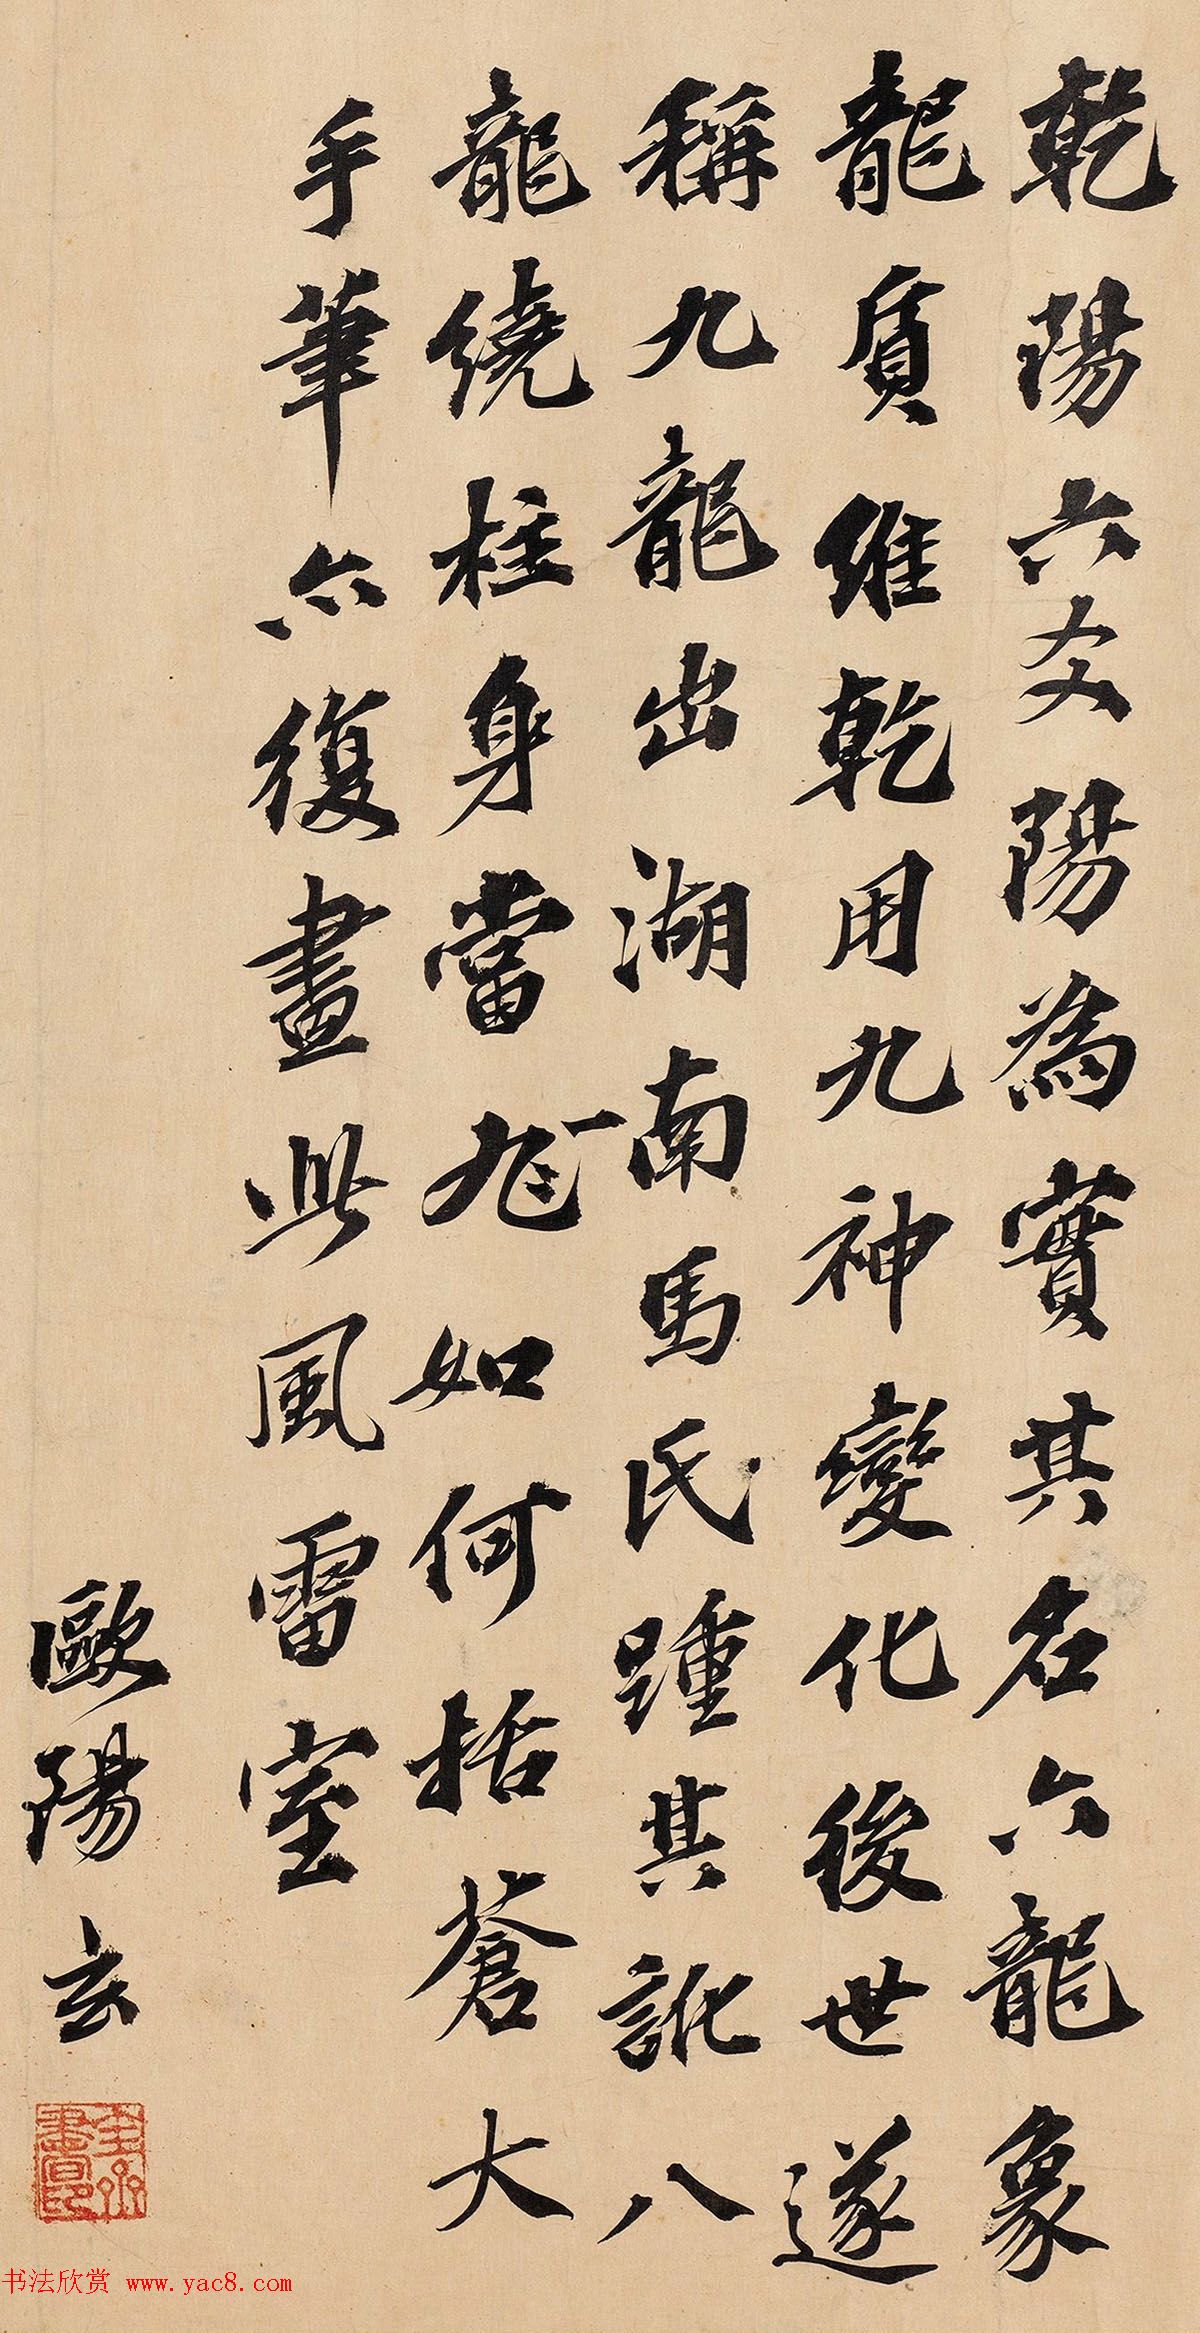 乾陽六爻陽為實其名六龍象
龍質維乾用九神變化後世遂
稱九龍出湖南馬氏踵其訛八
龍繞柱身當九一如何括蒼大
手筆亦復畫此風雷室
歐陽玄
书法欣赏 www.yac8.com